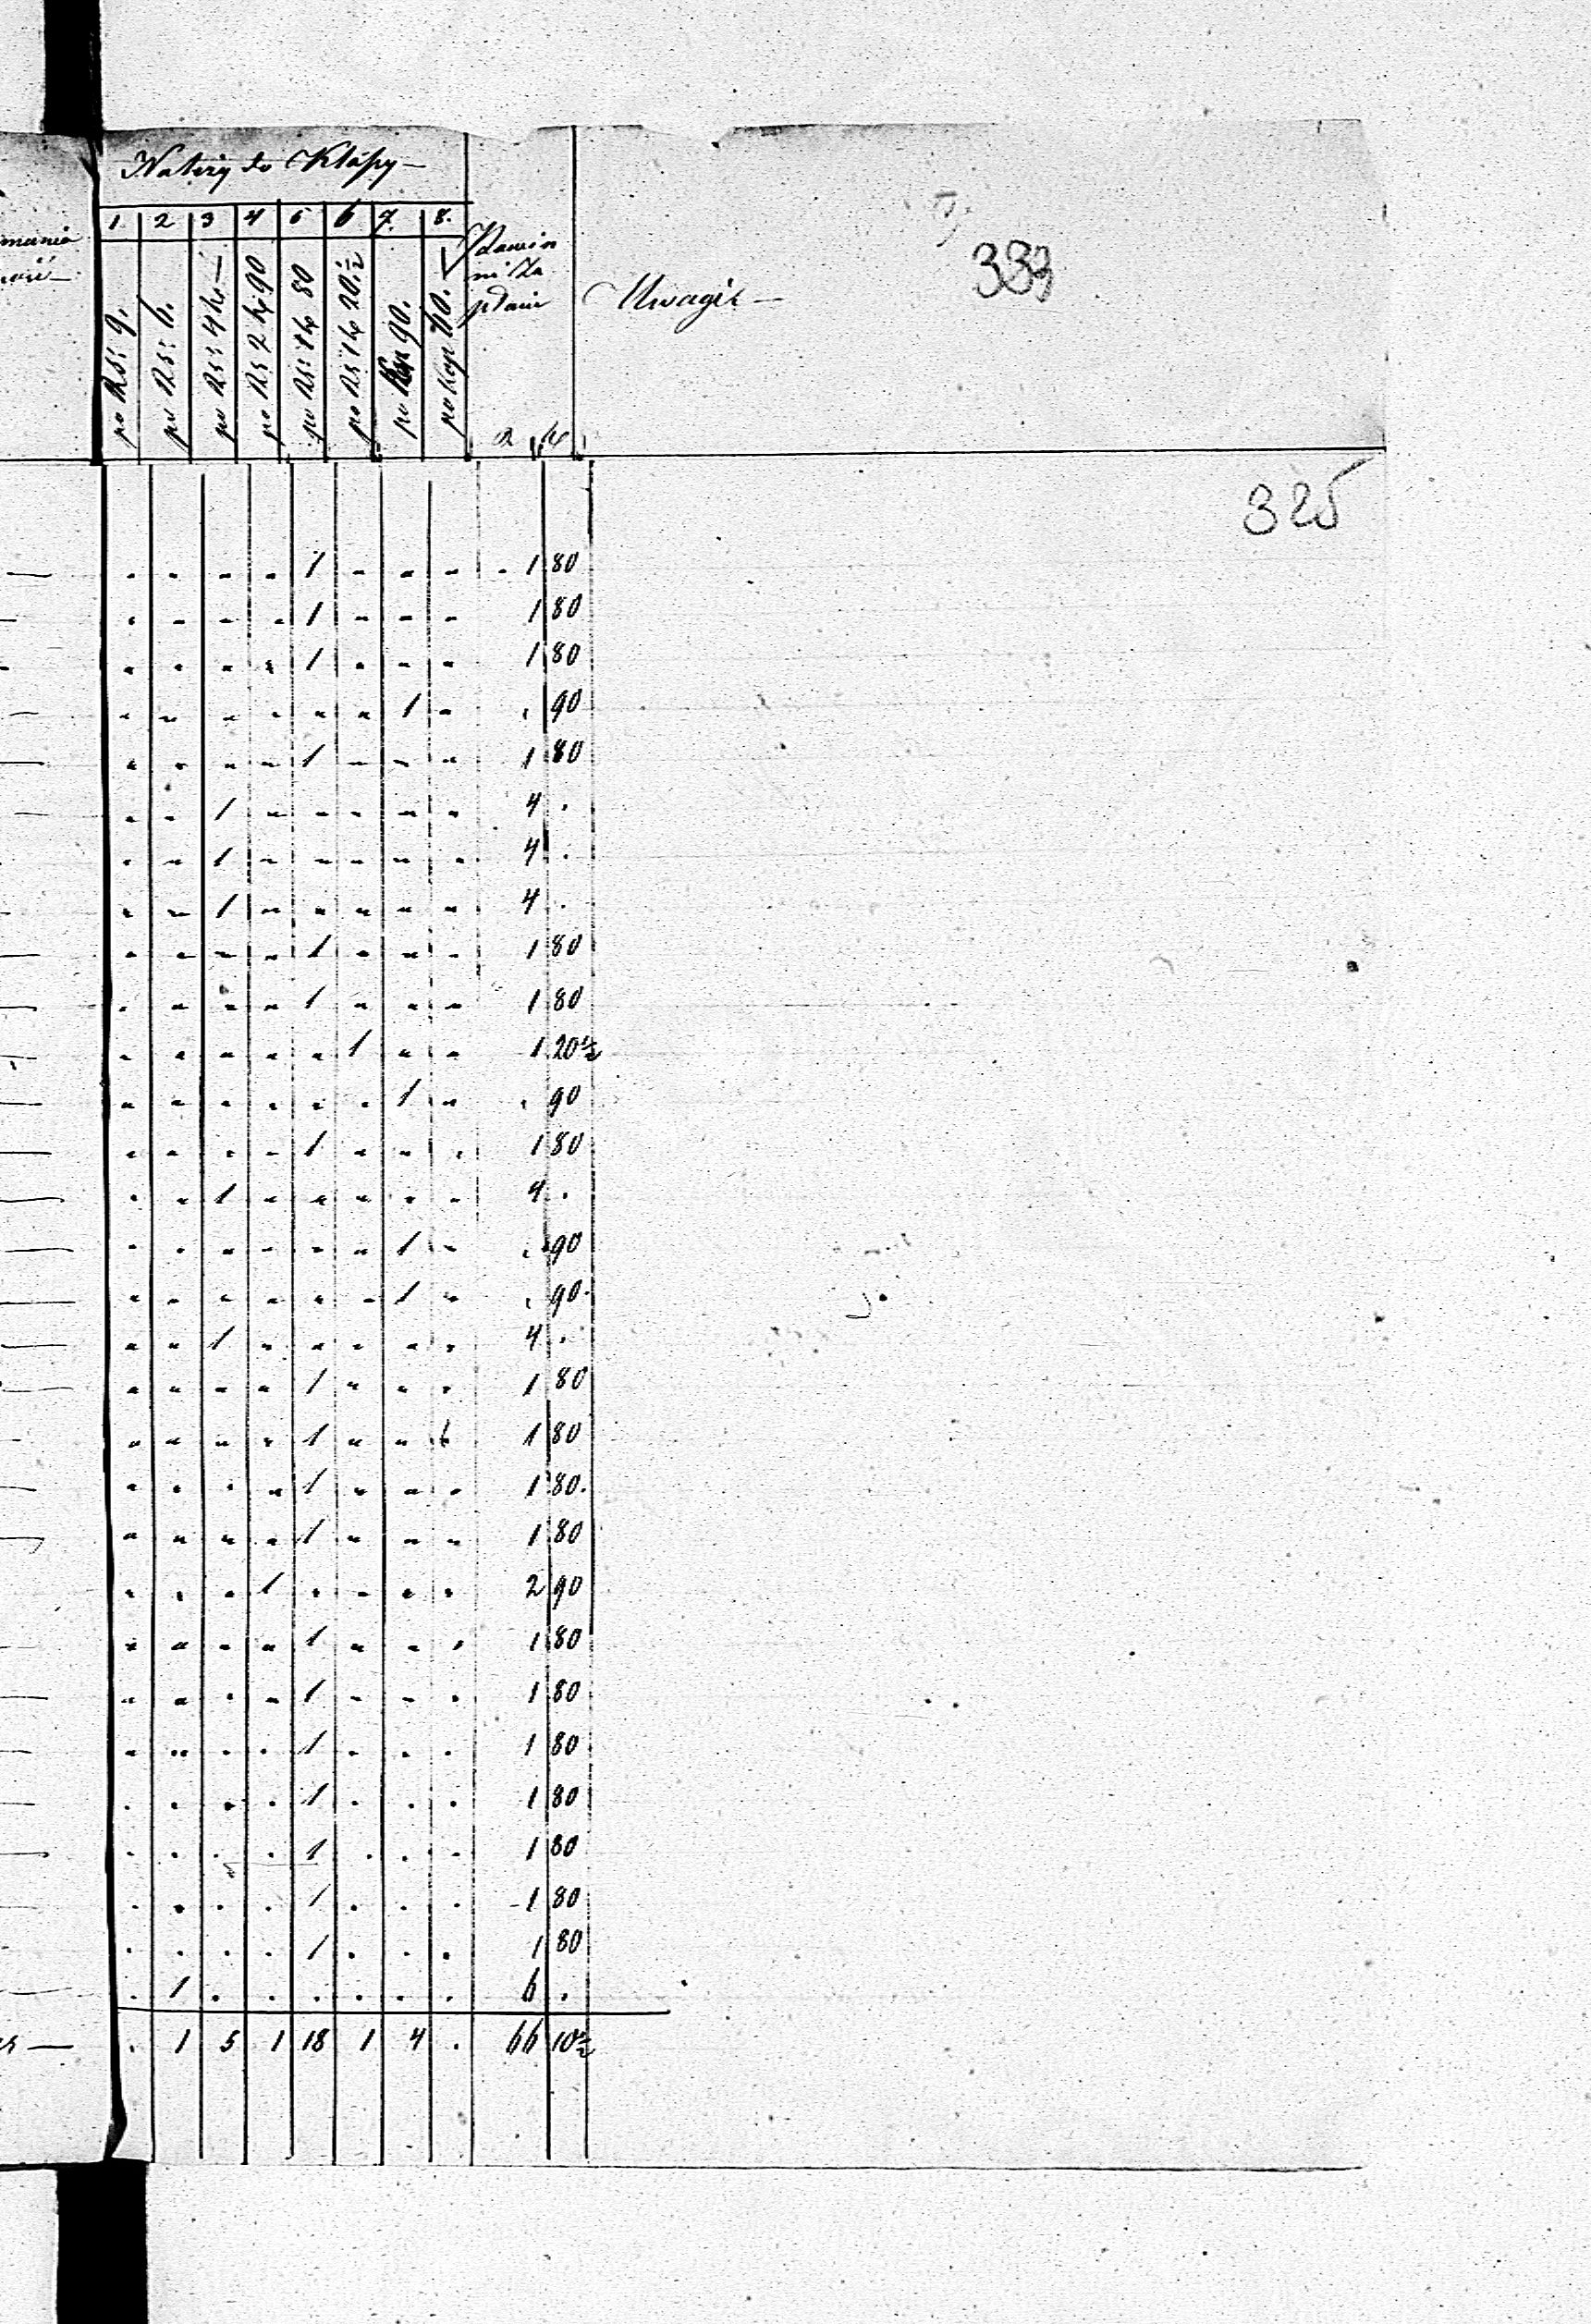 Należy do Klassy —
1. 2 3 4 5 6 7. 8.
po Rs: 9. po Rs: 6. po Rs: 4 ko — po Rs 2 k 90 po Rs: 1 ko 80 po Rs 1 ko 20 ½ po Kop 90. po Kop
Uwagi —
339
325
. . . . 1 . . . 1 80
. . . . 1 . . . 1 80
. . . . 1 . . . 1 80
. . . . . . 1 . . 90
. . . . 1 . . . 1 80
. . 1 . . . . . 4 .
. . 1 . . . . . 4 .
. . 1 . . . . . 4 .
. . . . 1 . . . 1 80
. . . . 1 . . . 1 80
. . . . . 1 . . 1 20½
. . . . . . 1 . . 90
. . . . 1 . . . 1 80
. . 1 . . . . . 4 .
. . . . . . 1 . . 90
. . . . . . 1 . . 90
. . 1 . . . . . 4 .
. . . . 1 . . . 1 80
. . . . 1 . . . 1 80
. . . . 1 . . . 1 80
. . . . 1 . . . 1 80
. . . 1 . . . . 2 90
. . . . 1 . . . 1 80
. . . . 1 . . . 1 80
. . . . 1 . . . 1 80
. . . . 1 . . . 1 80
. . . . 1 . . . 1 80
. . . . 1 . . . 1 80
. . . . 1 . . . 1 80
. 1 . . . . . . 6 .
. 1 5 1 18 1 4 . 66 10½